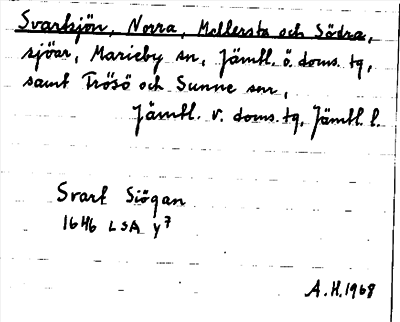 Svartsjön, Norra, Mellersta och Södra,
sjöar, Marieby sn, Jämtl. ö. doms. tg,
samt Frösö och Sunne snr,
Jämtl. v. doms. tg, Jämtl. l.
Svart Siögan
1646 LSA y7
A.H. 1968